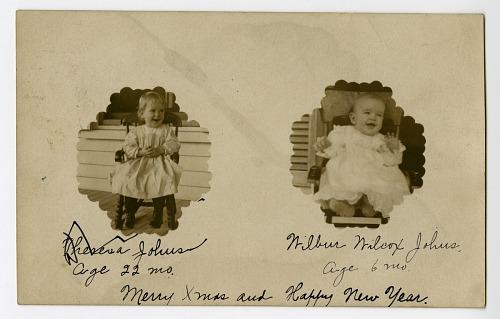 Theresa Johns
Age 22 mo.
Wilbur Wilcox Johns.
Age 6 mo.
Merry Xmas and Happy New Year.